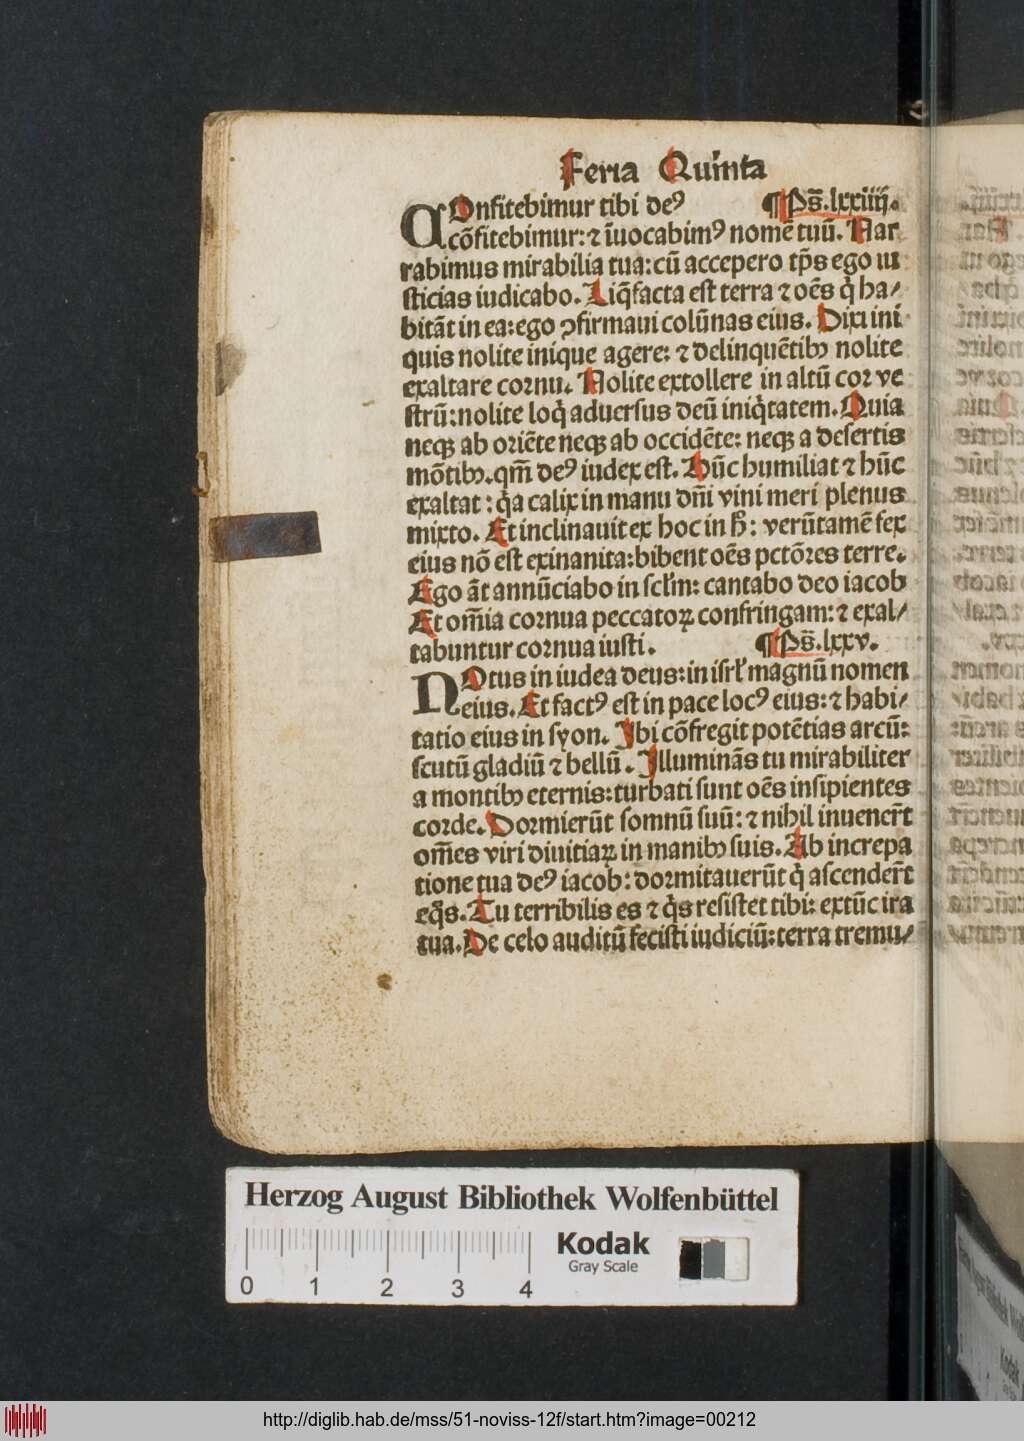 Feria Quinta
COnfitebimur tibi deꝰ ¶Ps̄.lxxiiij.
cōfitebimur: ⁊ īuocabimꝰ nomē tuū. Nar
rabimus mirabilia tua: cū accepero tp̄s ego iu
sticias iudicabo. Liq̄facta est terra ⁊ oēs q̇ ha/
bitāt in ea: ego ꝯfirmaui colūnas eius. Dixi ini
quis nolite inique agere: ⁊ delinquētibꝫ nolite
exaltare cornu. Nolite extollere in altū cor ve
strū: nolite loq̇ aduersus deū iniq̇tatem. Quia
neqꝫ ab oriēte neqꝫ ab occidēte: neqꝫ a desertis
mōtibꝫ. qm̄ deꝰ iudex est. Hūc humiliat ⁊ hūc
exaltat: q̇a calix in manu dn̄i vini meri plenus
mixto. Et inclinauit ex hoc in h̄: verūtamē fex
eius nō est exinanita: bibent oēs pctōres terre.
Ego āt annūciabo in scłm: cantabo deo iacob
Et om̄ia cornua peccatoꝝ confringam: ⁊ exal/
tabuntur cornua iusti. ¶Ps̄.lxxv.
NOtus in iudea deus: in isrł magnū nomen
eius. Et factꝰ est in pace locꝰ eius: ⁊ habi/
tatio eius in syon. Ibi cōfregit potētias arcū:
scutū gladiū ⁊ bellū. Illuminās tu mirabiliter
a montibꝫ eternis: turbati sunt oēs insipientes
corde. Dormierūt somnū suū: ⁊ nihil inuener̄t
om̄es viri diuitiaꝝ in manibꝫ suis. Ab increpa
tione tua deꝰ iacob: dormitauerūt q̇ ascender̄t
eq̄s. Tu terribilis es ⁊ q̇s resistet tibi: extūc ira
tua. De celo auditū fecisti iudiciū: terra tremu/
Herzog August Bibliothek Wolfenbüttel
0 1 2 3 4
Kodak
Gray Scale
http://diglib.hab.de/mss/51-noviss-12f/start.htm?image=00212